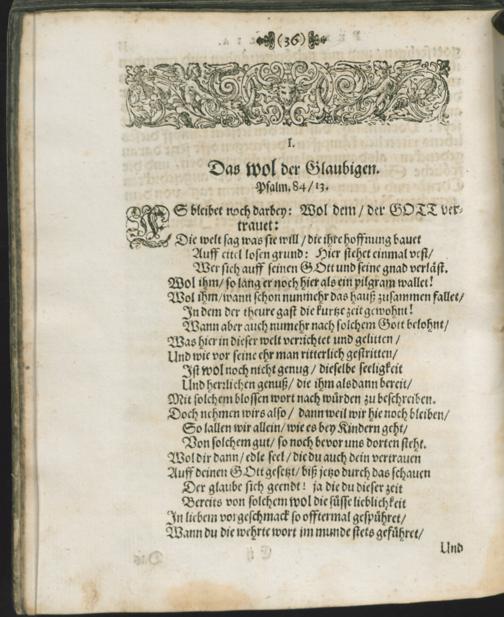 (36)
I.
Das wol der Glaubigen.
Psalm. 84/13.
ES bleibet noch darbey: Wol dem/ der GOTT ver-
trauet:
Die welt sag was sie will/ die ihre hoffnung bauet
Auff eitel losen grund: Hier stehet einmal vest/
Wer sich auff seinen GOtt und seine gnad verläst.
Wol ihm/ so lang er noch hier als ein pilgram wallet!
Wol ihm/ wann schon nunmehr das hauß zusammen fallet/
In dem der theure gast die kurtze zeit gewohnt!
Wann aber auch numehr nach solchem Gott belohnt/
Was hier in dieser welt verrichtet und gelitten/
Und wie vor seine ehr man ritterlich gestritten/
Ist wol noch nicht genug/ dieselbe seeligkeit
Und herzlichen genuß/ die ihm alsdann bereit/
Mit solchem blossen wort nach würden zu beschreiben.
Doch nehmen wirs also/ dann weil wir hie noch bleiben/
So lallen wir allein/ wie es bey Kindern geht/
Von solchem gut/ so noch bevor uns dorten steht.
Wol dir dann/ edle seel/ die du auch dein vertrauen
Auff deinen GOtt gesetzt/ biß jetzo durch das schauen
Der glaube sich geendt! ja die du dieser zeit
Bereits von solchem wol die süsse lieblichkeit
In liebem vorgeschmack so offtermal gespühret/
Wann du die wehrte wort im munde stets geführet/
Und